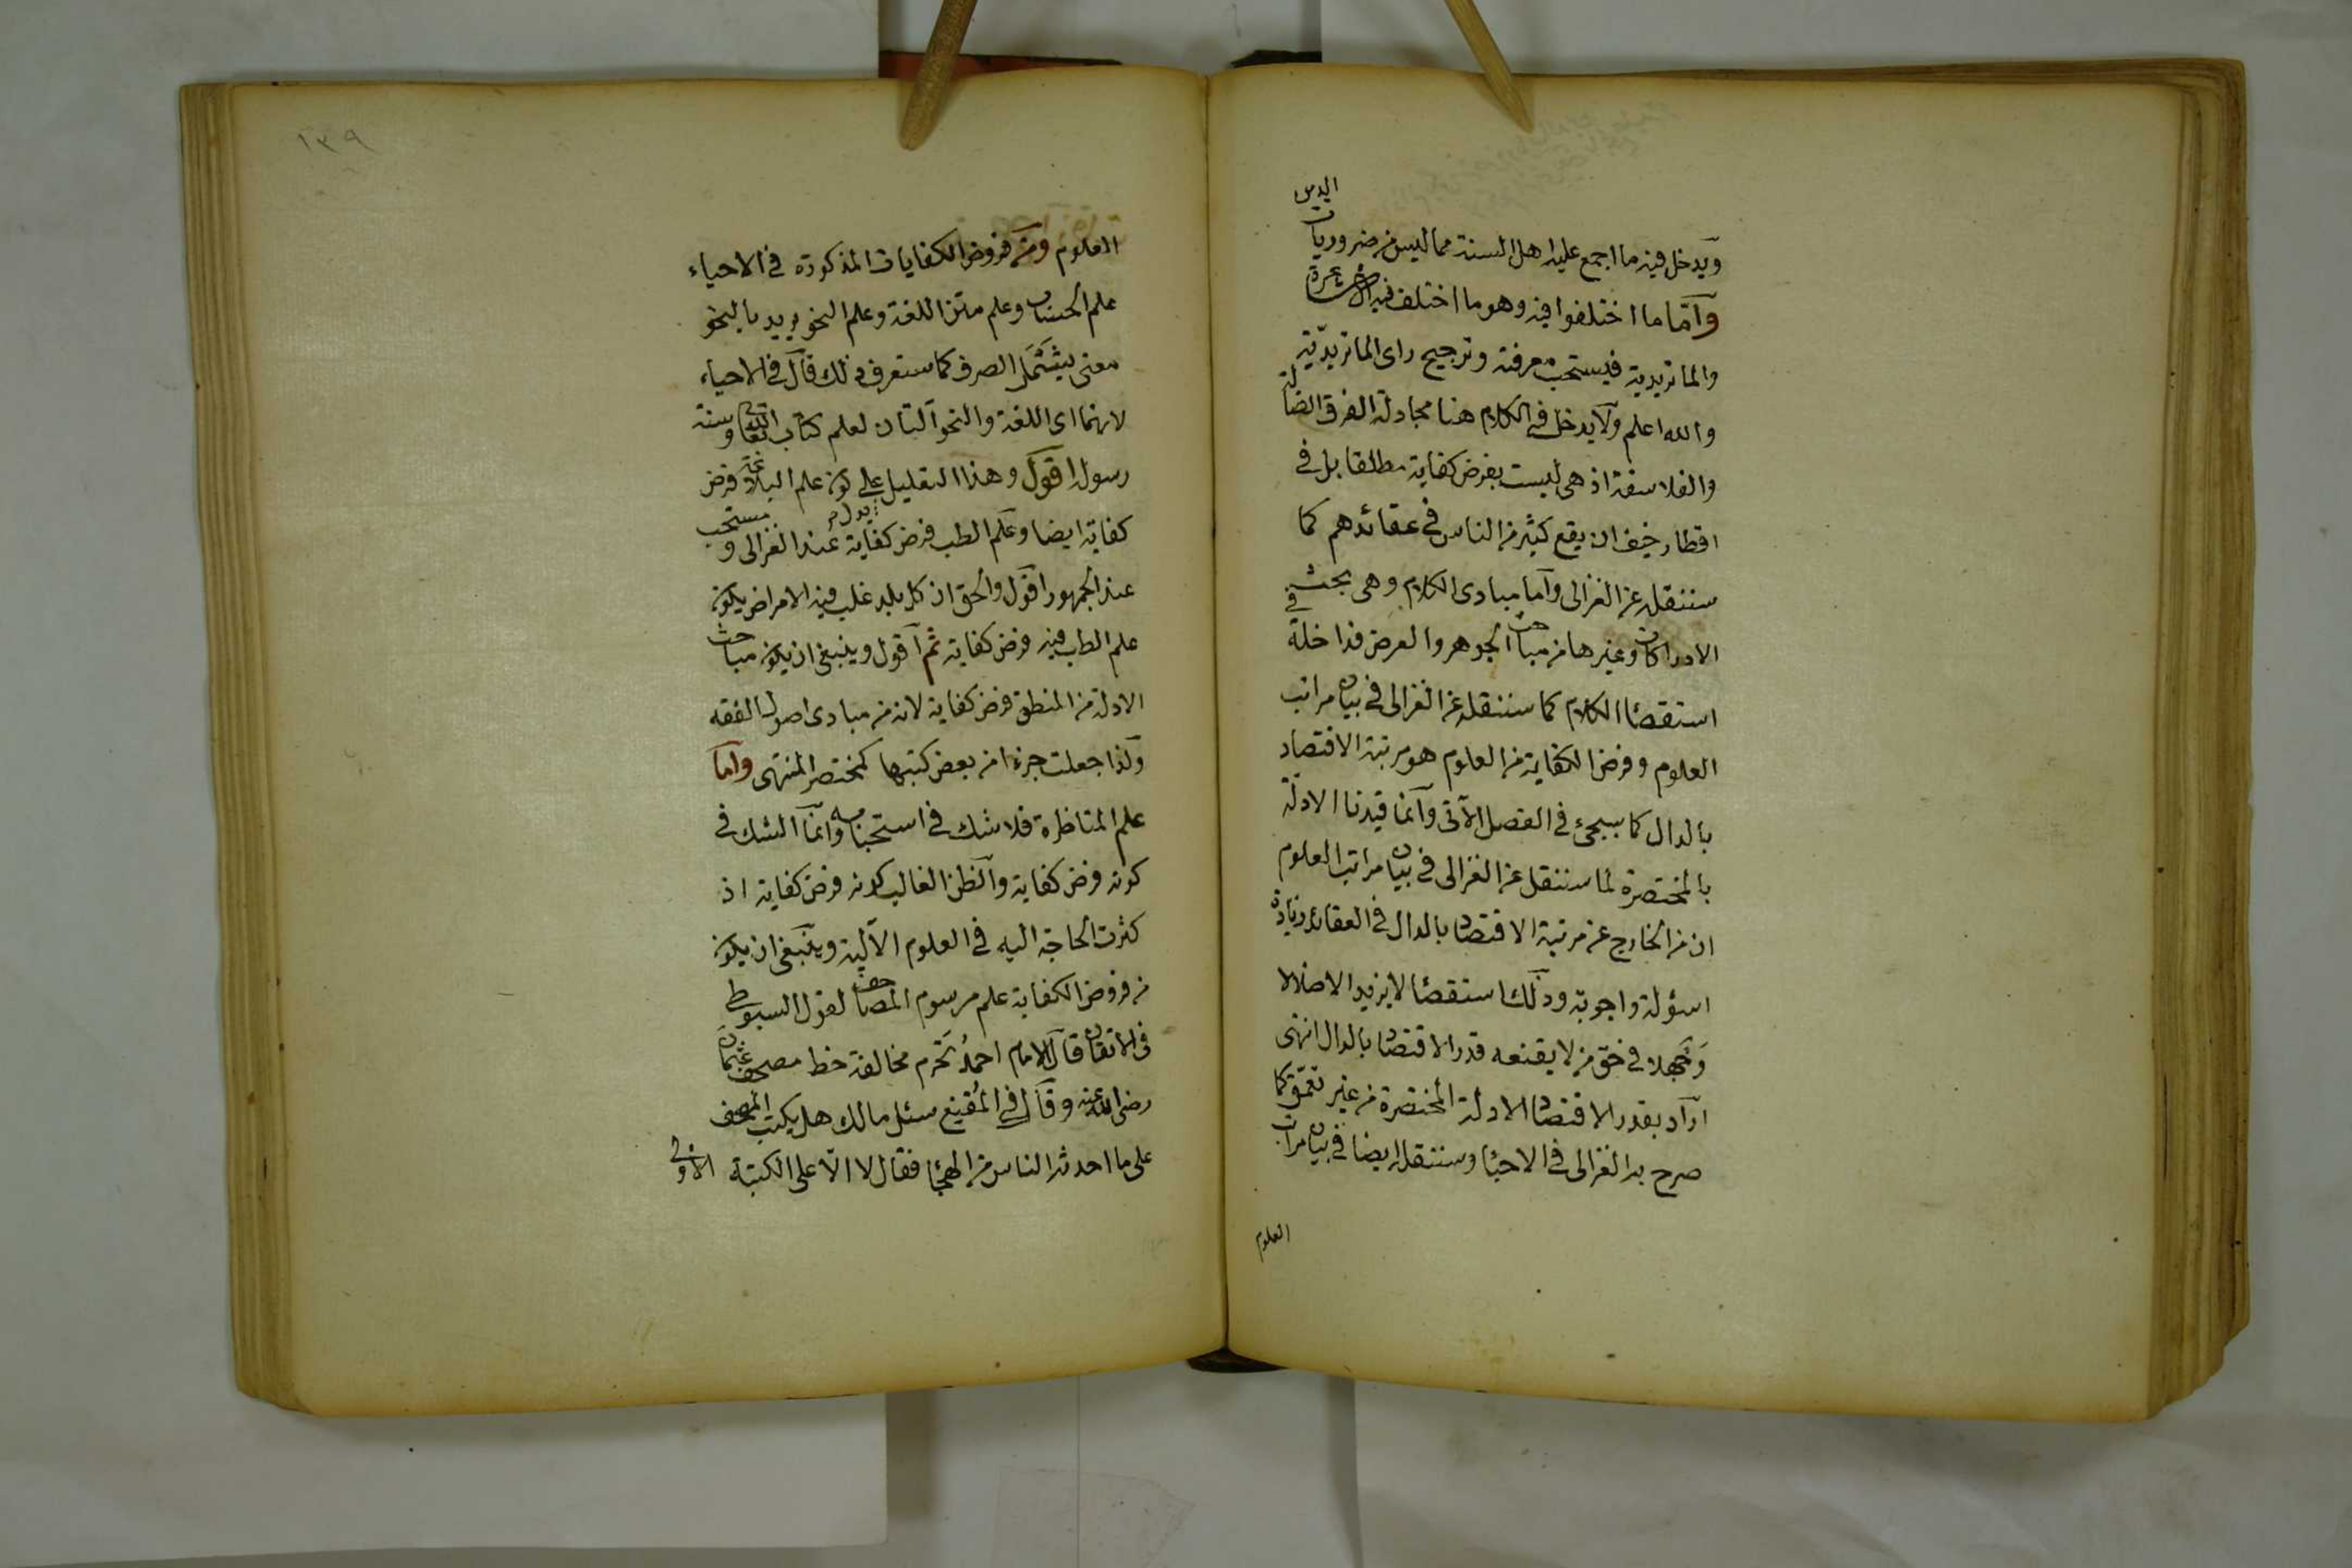 ويدخل فيه ما اجمع عليه اهل السنة مما ليس من ضروريات الدين
وأما ما اختلفوا فيه وهو ما اختلف فيه الأشاعرة
والماتريدية فيستحب معرفته وترجيح راى الماتريدية
والله اعلم ولا يدخل في الكلام هنا مجادلة الفرق الضالة
والفلاسفة اذ هى ليست بفرض كفاية مطلقا بل في
اقطار خيف ان يقع كثير من الناس في عقائدهم كما
سننقله عن الغزالى وأما مبادى الكلام وهى بحث في
الادراكات وغيرها من مباحث الجوهر والعرض فداخلة
استقصاء الكلام كما سننقله عن الغزالى في بيان مراتب
العلوم وفرض الكفاية من العلوم هو مرتبة الاقتصاد
بالدال كما سيجئ في الفصل الآتى وانما قيدنا الادلة
بالمختصرة لما سننقل عن الغزالى في بيان مراتب العلوم
ان من الخارج عن مرتبة الاقتصاد بالدال في العقائد زيادة
اسؤلة واجوبة وذلك استقصاء لا يزيد الا ضلالا
وجهلا في حق من لا يقنعه قدر الاقتصاد بالدال انتهى
اراد بقدر الاقتصاد الادلة المختصرة من غير تعمق كما
صرح به الغزالى في الاحياء وسننقله ايضا في بيان مراتب
العلوم
١٣٩
العلوم ومن فروض الكفايات المذكورة في الاحياء
علم الحساب وعلم متن اللغة وعلم النحو يريد بالنحو
معنى يشتمل الصرف كما ستعرف ذلك قال في الاحياء
لانهما اى اللغة والنحو آلتان لعلم كتاب الله تعالى وسنة
رسوله اقول وهذا التعليل يدل على كون علم البلاغة فرض
كفاية ايضا وعلم الطب فرض كفاية عند الغزالى ومستحب
عند الجمهور اقول والحق ان كل بلد غلب فيه الامراض يكون
علم الطب فيه فرض كفاية ثم اقول وينبغى ان يكون مباحث
الادلة من المنطق فرض كفاية لانه من مبادى اصول الفقه
ولذا جعلت جزءا من بعض كتبها كمختصر المنتهى واما
علم المناظرة فلا شك في استحبابه وانما الشك في
كونه فرض كفاية والظن الغالب كونه فرض كفاية اذ
كثرت الحاجة اليه في العلوم الآلية وينبغى ان يكون
من فروض الكفاية علم مرسوم المصاحف لقول السيوطى
في الاتقان قال الامام احمد تحرم مخالفة خط مصحف عثمان
رضى الله عنه وقال في المقنع سئل مالك هل يكتب المصحف
على ما احدثه الناس من الهجاء فقال لا الّا على الكتبة الاولى